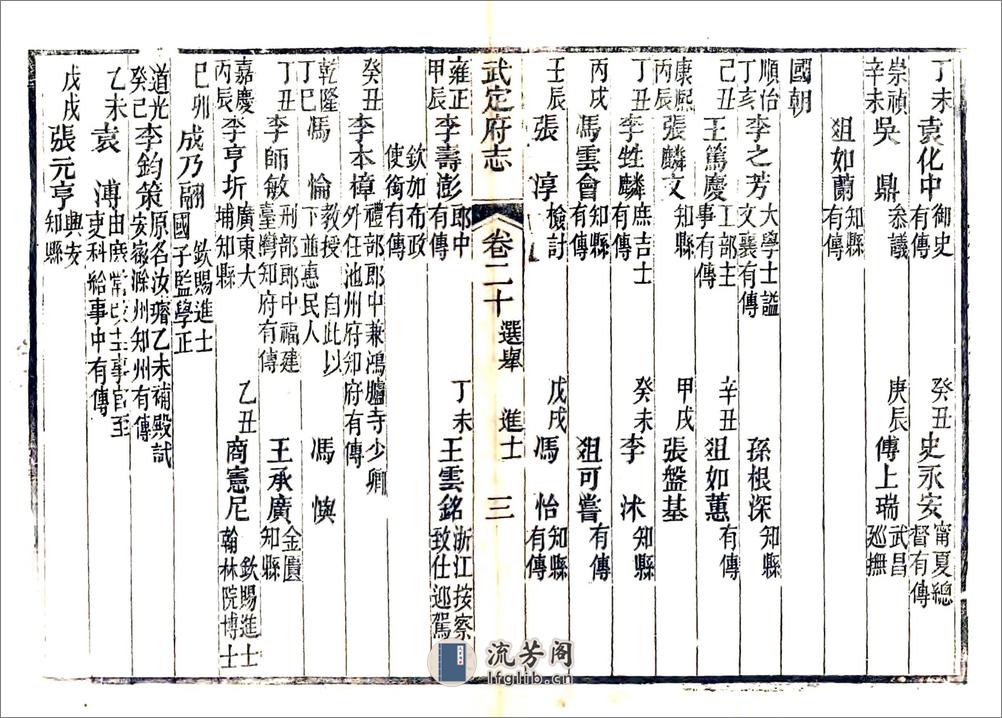 丁未 袁化中 御史有傳 癸丑 史永安 甯夏總督有傳
崇禎辛未 吳鼎 叅議有傳 庚辰 傅上瑞 武昌廵撫
狙如蘭 知縣有傳
國朝
順治丁亥 李之芳 大學士謚文襄有傳 孫根深 知縣
己丑 王篤慶 工部主事有傳 辛丑 狙如蕙 有傳
康熙丙辰 張麟文 知縣 甲戌 張盤基
丁丑 李甡麟 庶吉士有傳 癸未 李沐 知縣
丙戌 馮雲會 知縣有傳 狙可嘗 有傳
壬辰 張淳 檢討 戊戌 馮怡 知縣有傳
武定府志 卷二十 選舉 進士 三
雍正甲辰 李壽澎 郎中有傳 丁未 王雲銘 浙江按察致仕迎駕
欽加布政使銜有傳
癸丑 李本樟 禮部郎中兼鴻臚寺少卿外任池州府知府有傳
乾隆丁巳 馮愉 教授 自此以下並惠民人 馮懊
丁丑 李師敏 刑部郎中福建臺灣知府有傳 王承廣 金匱知縣
嘉慶丙辰 李亨圻 廣東大埔知縣 乙丑 商憲尼 欽賜進士翰林院博士
己卯 成乃翮 欽賜進士國子監學正
道光癸巳 李鈞策 原名汝霽乙未補殿試安徽滁州知州有傳
乙未 袁溥 由庶常改主事官至吏科給事中有傳
戊戌 張元亨 興安知縣
流芳阁
lfglib.cn